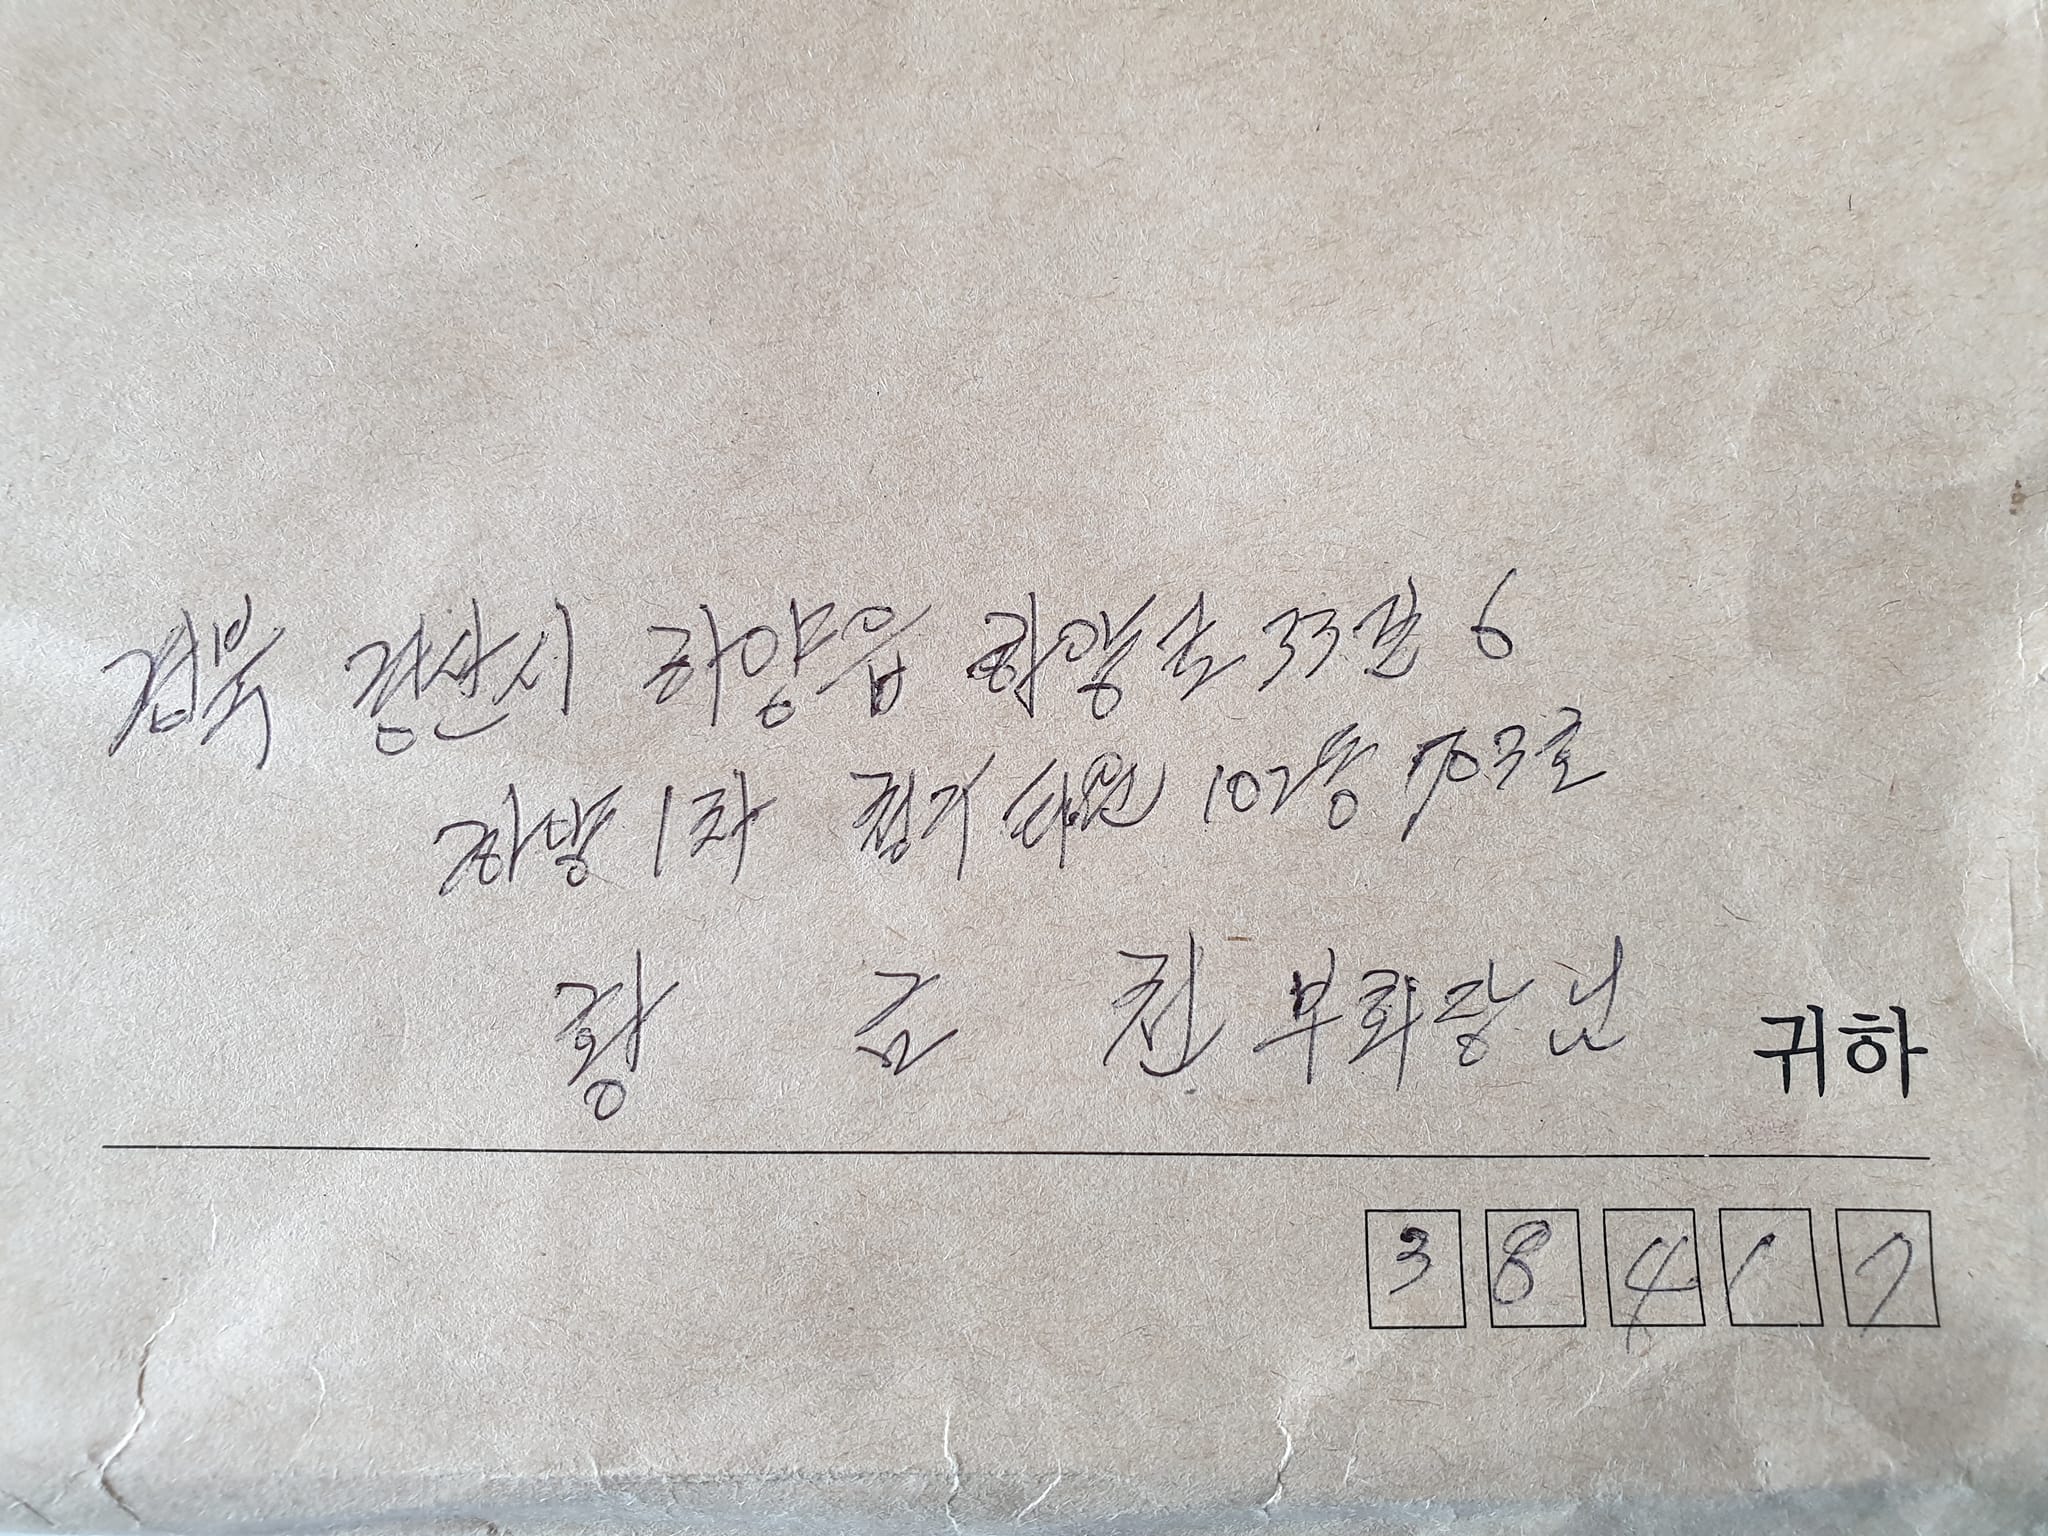 경북 경산시 하양읍 하양로 33길 6
하양 1차 청기타운 102동 703호
황 금 천 부회장님 귀하
3 8 4 1 7